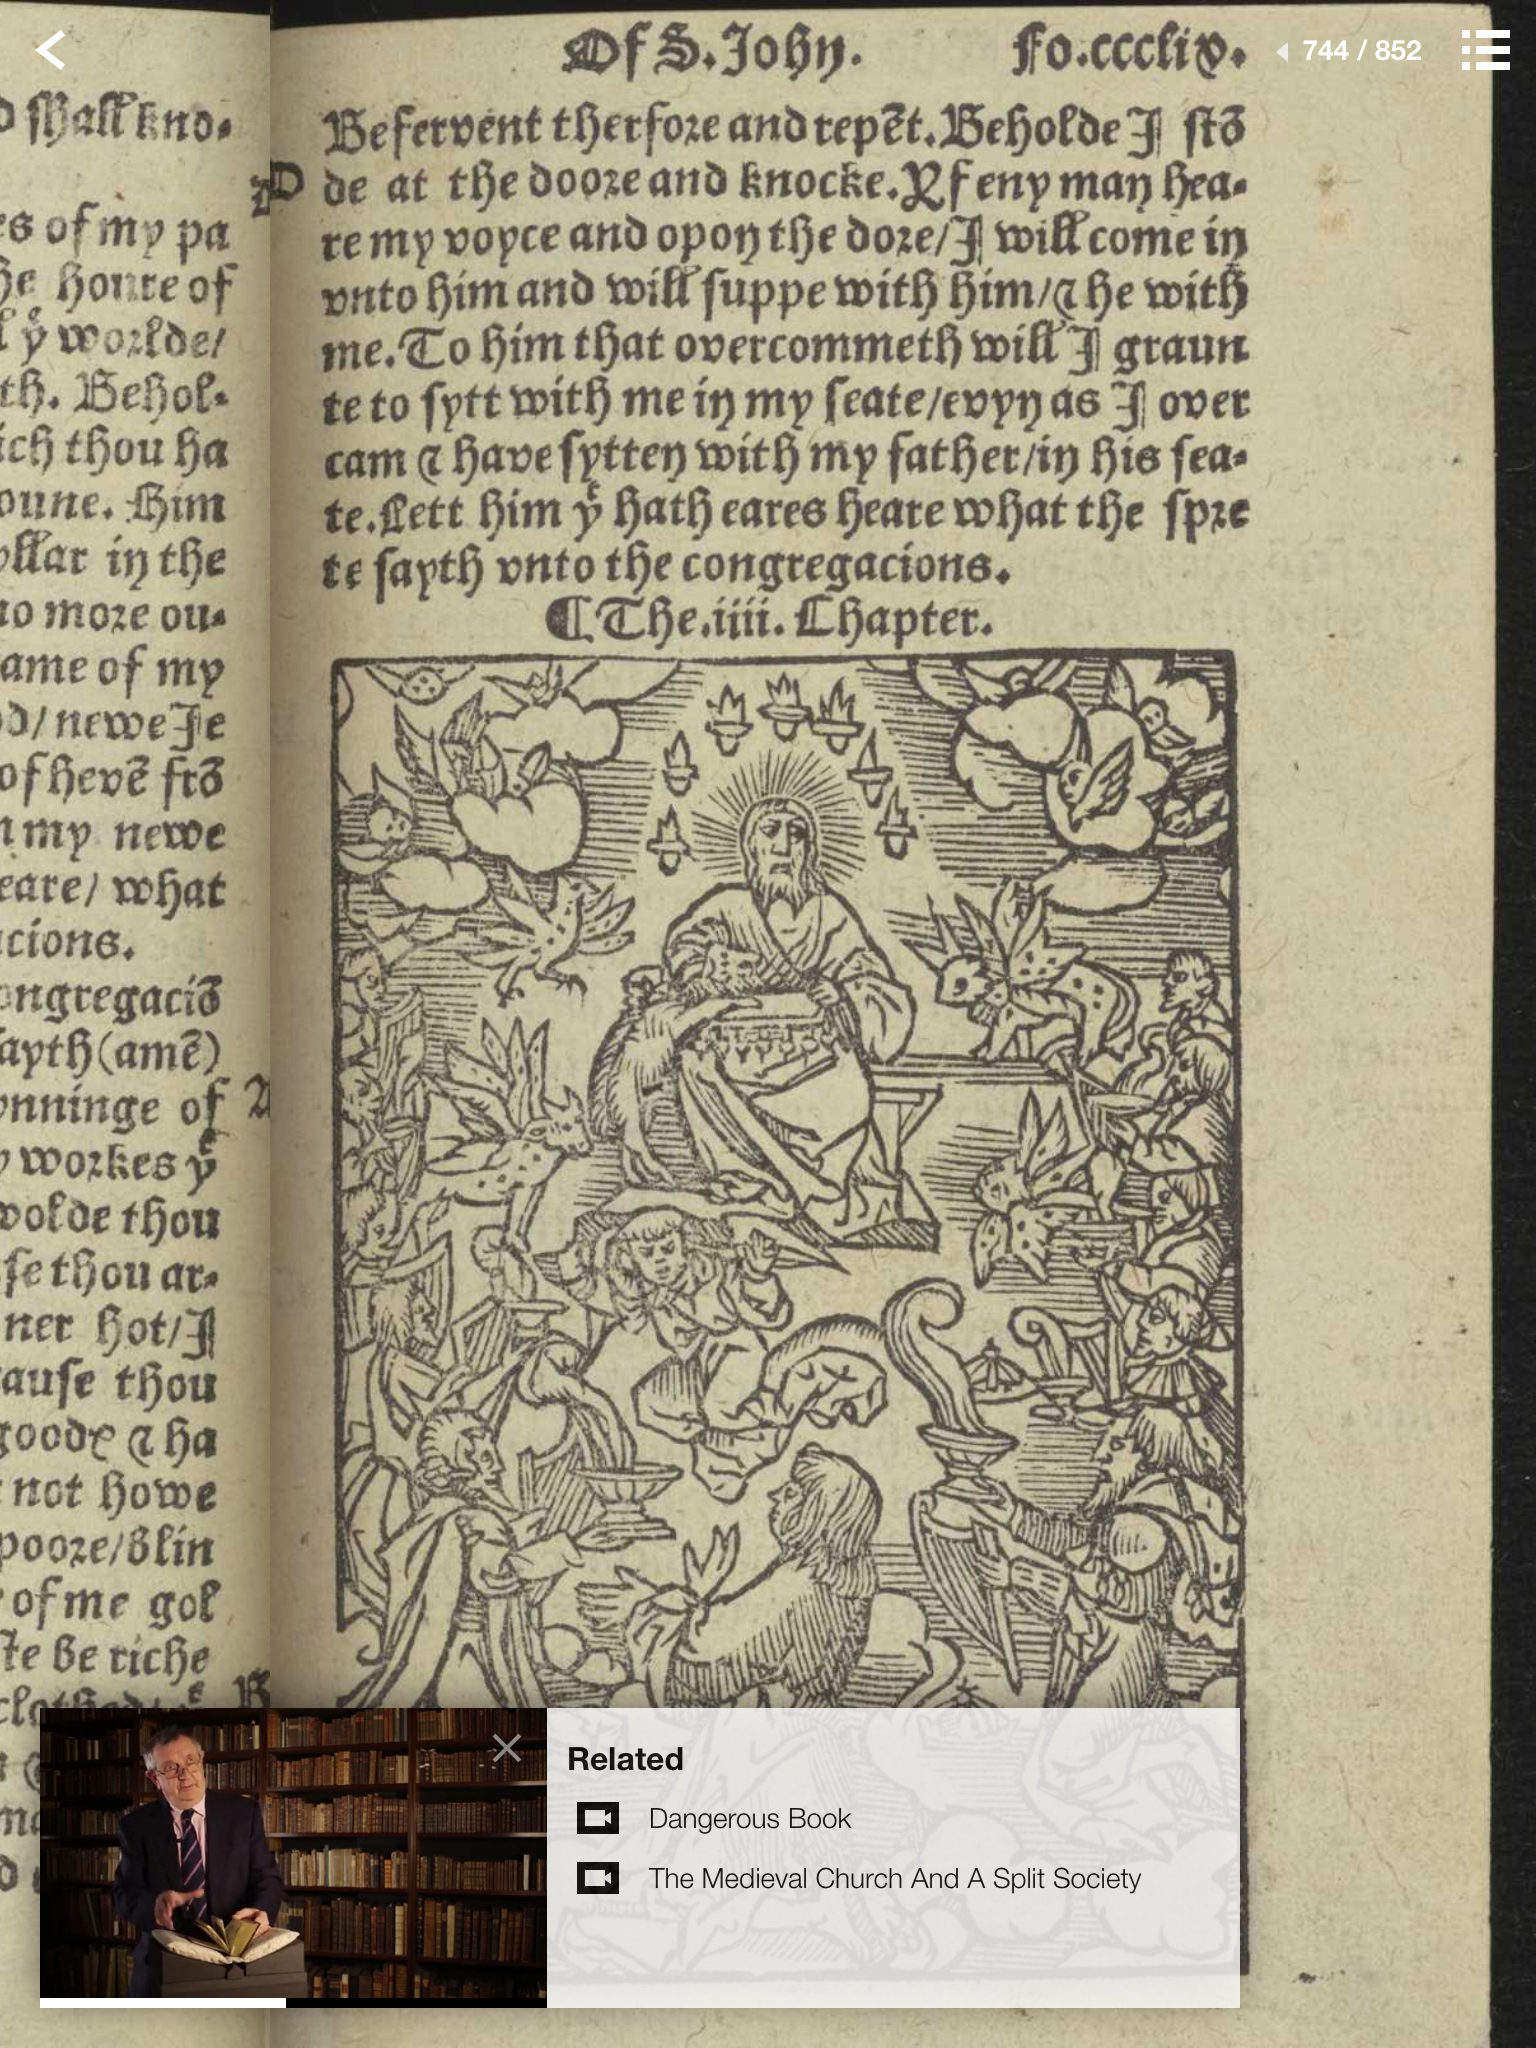 Of S. John. Fo.cccliv.
744 / 852
d shall kno-
es of my pa
he houre of
l yͤ worlde/
th. Behol-
ich thou ha
oune. Him
ollar in the
no more ou-
ame of my
od/ newe Je
of hevē frō
n my newe
eare/ what
acions.
ongregaciō
ayth (amē)
ynninge of
y workes yͤ
wolde thou
se thou ar-
ner hot/ I
ause thou
ꝛ ha
not howe
poore/ blin
of me gol
be riche
D
A
B
Be fervent therfore and repēt. Beholde I stō
de at the doore and knocke. Yf eny man hea-
re my voyce and opon the dore/ I will come in
vnto him and will suppe with him/ ꝛ he with
me. To him that overcommeth will I graun
te to sytt with me in my seate/ evyn as I over
cam ꝛ have sytten with my father/ in his sea-
te. Lett him yͭ hath eares heare what the spre
te sayth vnto the congregacions.
¶ The .iiii. Chapter.
Related
Dangerous Book
The Medieval Church And A Split Society